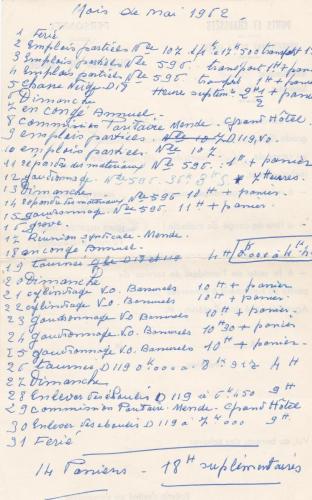 Mois de mai 1962
1 Ferié
2 Emplois partiels Nle 107
3 Emplois partiels Nle 595. transport 1H + panier
4 Emplois partiels Nle 595 transport 1H + panier
5 Chasse Neige D19 Heure suplem
6 Dimanche
7 en congé Annuel
8 commission Paritaire Mende - Grand Hôtel
9 emplois partiels D119, V.O.
10 emplois partiels Nle 107.
11 repandre des materiaux Nle 595. 1H + panier
12 gaudronnage Nle 595 7 Heures.
13 Dimanche
14 repandre les materiaux Nle 595 10H + panier.
15 gaudronnage Nle 595 11H + panier.
16 greve.
17 Réunion syndicale - Mende.
18 en congé Annuel.
19 Tournee 4H
20 Dimanche
21 cylindrage V.O. Banuels 10H + panier
22 cylindrage V.O. Banuels 10H + panier.
23 gaudronnage V.O. Banuels 10H + panier
24 gaudronnage V.O. Banuels 10H30 + panier
25 gaudronnage V.O. Banuels 10H + panier.
26 tournee D119 4H
27 Dimanche
28 Enlever des eboulis D119 à 6K450 9H
29 commission Paritaire - Mende - Grand Hôtel
30 Enlever des eboulis D119 à 7K000 9H.
31 Ferié
14 Paniers - 18H suplémentaires